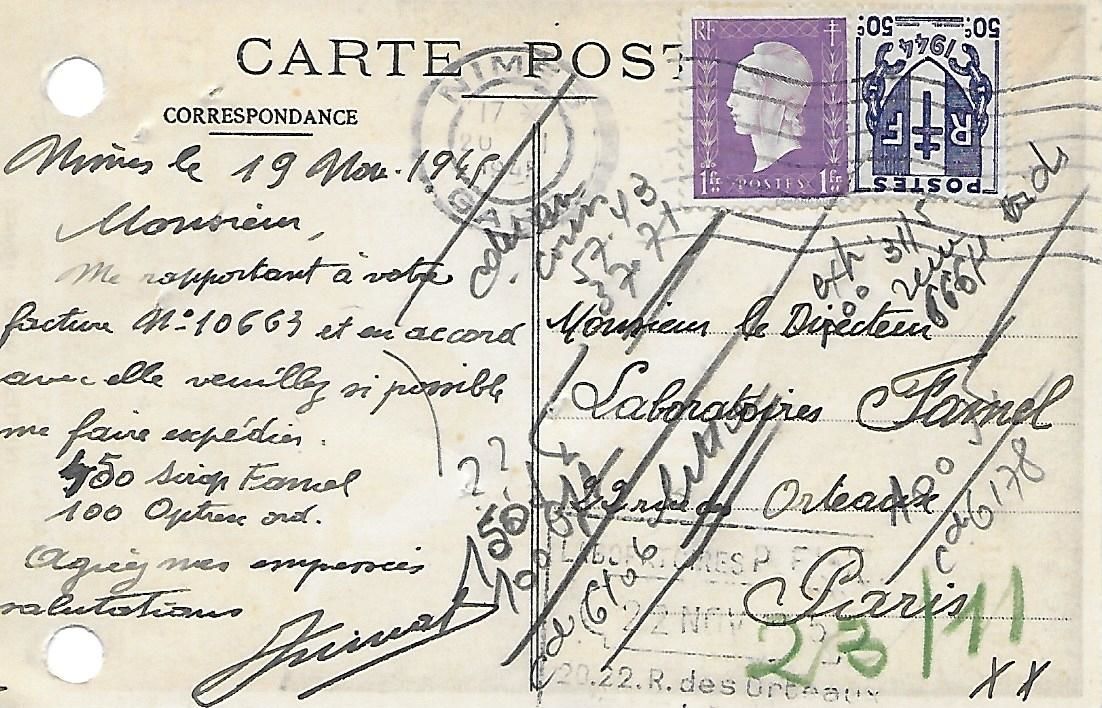 CARTE POST
CORRESPONDANCE
Nîmes le 19 Nov. 1945
Monsieur,
Me rapportant à votre
facture N° 10663 et en accord
avec elle veuillez si possible
me faire expédier.
150 Sirop Famel
100 Optrex ord.
Agréez mes empressées
salutations
NIMES
17
20
1945
GARD
RF
1fr POSTES 1fr
50c 50c
1944
RF
POSTES
57.43
37.71
Monsieur le Directeur
Laboratoires Famel
Orteaux
Paris
??
cde 6106
cde 6178
LABORATOIRES P. F
22 NOV 5
20.22.R. des Orteaux
23/11
XX